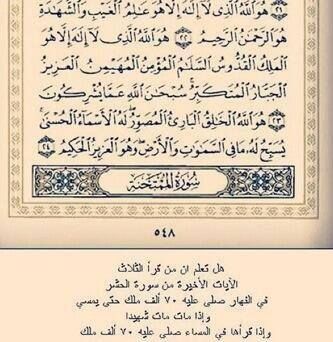 هُوَ ٱللَّهُ ٱلَّذِى لَآ إِلَٰهَ إِلَّا هُوَ عَٰلِمُ ٱلْغَيْبِ وَٱلشَّهَٰدَةِ
هُوَ ٱلرَّحْمَٰنُ ٱلرَّحِيمُ ٢٢ هُوَ ٱللَّهُ ٱلَّذِى لَآ إِلَٰهَ إِلَّا هُوَ
ٱلْمَلِكُ ٱلْقُدُّوسُ ٱلسَّلَٰمُ ٱلْمُؤْمِنُ ٱلْمُهَيْمِنُ ٱلْعَزِيزُ
ٱلْجَبَّارُ ٱلْمُتَكَبِّرُ سُبْحَٰنَ ٱللَّهِ عَمَّا يُشْرِكُونَ
٢٣ هُوَ ٱللَّهُ ٱلْخَٰلِقُ ٱلْبَارِئُ ٱلْمُصَوِّرُ لَهُ ٱلْأَسْمَآءُ ٱلْحُسْنَىٰ
يُسَبِّحُ لَهُۥ مَا فِى ٱلسَّمَٰوَٰتِ وَٱلْأَرْضِ وَهُوَ ٱلْعَزِيزُ ٱلْحَكِيمُ ٢٤
سُورَةُ الْمُمْتَحنَةِ
٥٤٨
هل تعلم ان من قرأ الثلاث
الآيات الأخيرة من سورة الحشر
في النهار صلى عليه ٧٠ ألف ملك حتى يمسي
وإذا مات مات شهيدا
وإذا قرأها في المساء صلى عليه ٧٠ ألف ملك